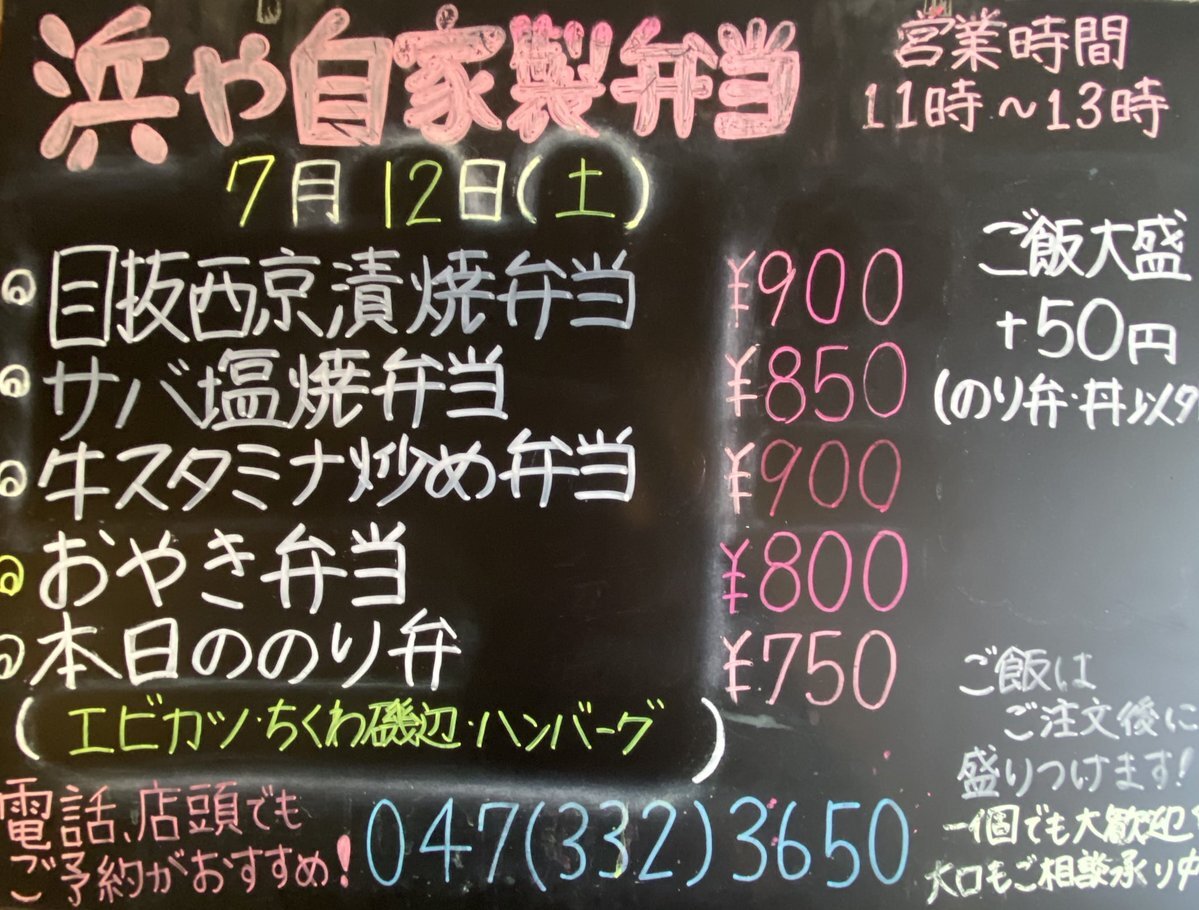 浜や自家製弁当
営業時間
11時～13時
7月12日(土)
目抜西京漬焼弁当 ¥900
サバ塩焼弁当 ¥850
牛スタミナ炒め弁当 ¥900
おやき弁当 ¥800
本日ののり弁 ¥750
(エビカツ・ちくわ磯辺・ハンバーグ)
ご飯大盛
+50円
(のり弁・丼以外
ご飯は
ご注文後に
盛りつけます!
一個でも大歓迎
大口もご相談承り中
電話、店頭でも
ご予約がおすすめ!
047(332)3650